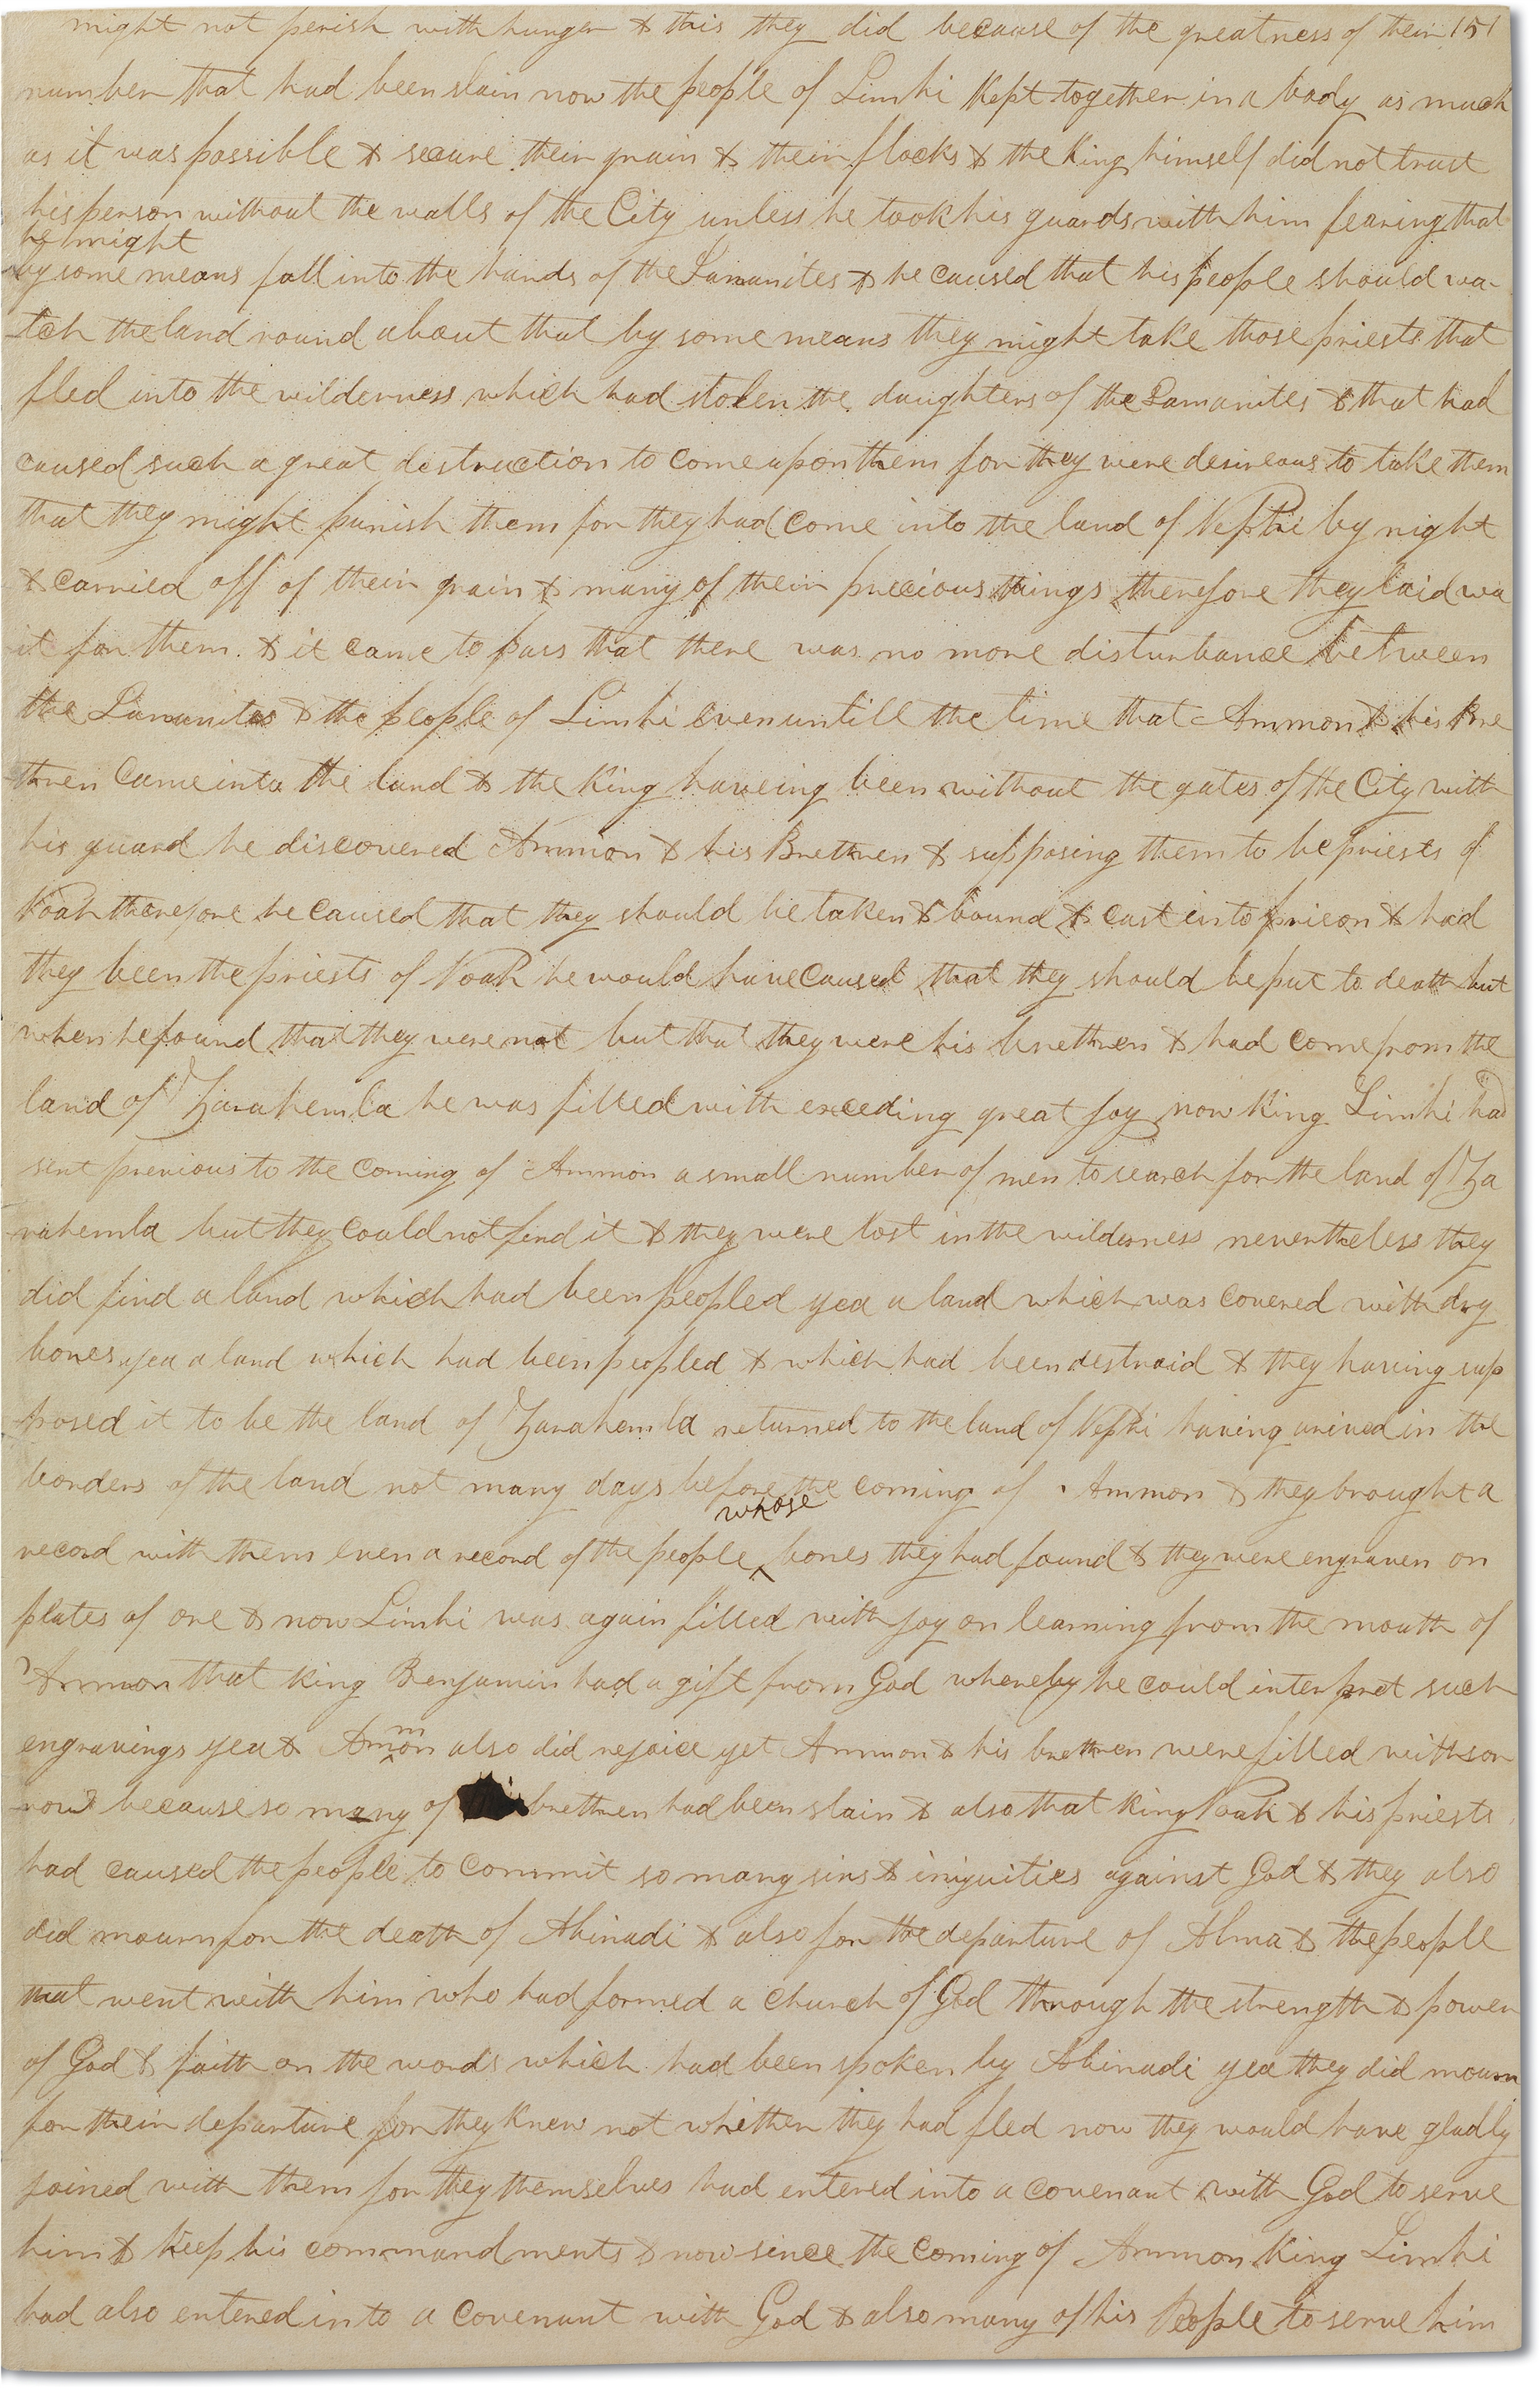 might not perish with hunger & this they did because of the greatness of their 151
number that had been slain now the people of Limhi kept together in a body as much
as it was possible & secure their grain & their flocks & the King himself did not trust
his person without the walls of the City unless he took his guards with him fearing that
he might
by some means fall into the hands of the Lamanites & he caused that his people should wa-
tch the land round about that by some means they might take those priests that
fled into the wilderness which had stolen the daughters of the Lamanites & that had
caused such a great destruction to come upon them for they were desireous to take them
that they might punish them for they had come into the land of Nephi by night
& carried off of their grain & many of their precious things therefore they laid wa
it for them. & it came to pass that there was no more disturbance between
the Lamanites & the people of Limhi even untill the time that Ammon & his bre
thren came into the land & the King haveing been without the gates of the City with
his guard he discovered Ammon & his Brethren & supposing them to be priests of
Noah therefore he caused that they should be taken & bound & cast into prison & had
they been the priests of Noah he would have caused that they should be put to death but
when he found that they were not but that they were his brethren & had come from the
land of Zarahemla he was filled with exceding great joy now King Limhi had
sent previous to the coming of Ammon a small number of men to search for the land of Za
rahemla but they could not find it & they were lost in the wilderness nevertheless they
did find a land which had been peopled yea a land which was covered with dry
bones yea a land which had been peopled & which had been destroid & they having sup
posed it to be the land of Zarahemla returned to the land of Nephi having arived in the
borders of the land not many days before the coming of Ammon & they brought a
whose
record with them even a record of the people ^ bones they had found & they were engraven on
plates of ore & now Limhi was again filled with joy on learning from the mouth of
Ammon that king Benjamin had a gift from God whereby he could interpret such
engravings yea & Ammon also did rejoice yet Ammon & his brethren were filled with sor
row because so many of brethren had been slain & also that king Noah & his priests
had caused the people to commit so many sins & iniquities against God & they also
did mourn for the death of Abinadi & also for the departure of Alma & the people
that went with him who had formed a church of God through the strength & power
of God & faith on the words which had been spoken by Abinadi yea they did mourn
for their departure for they knew not whither they had fled now they would have gladly
joined with them for they themselves had entered into a covenant with God to serve
him & keep his commandments & now since the coming of Ammon King Limhi
had also entered into a covenant with God & also many of his People to serve him